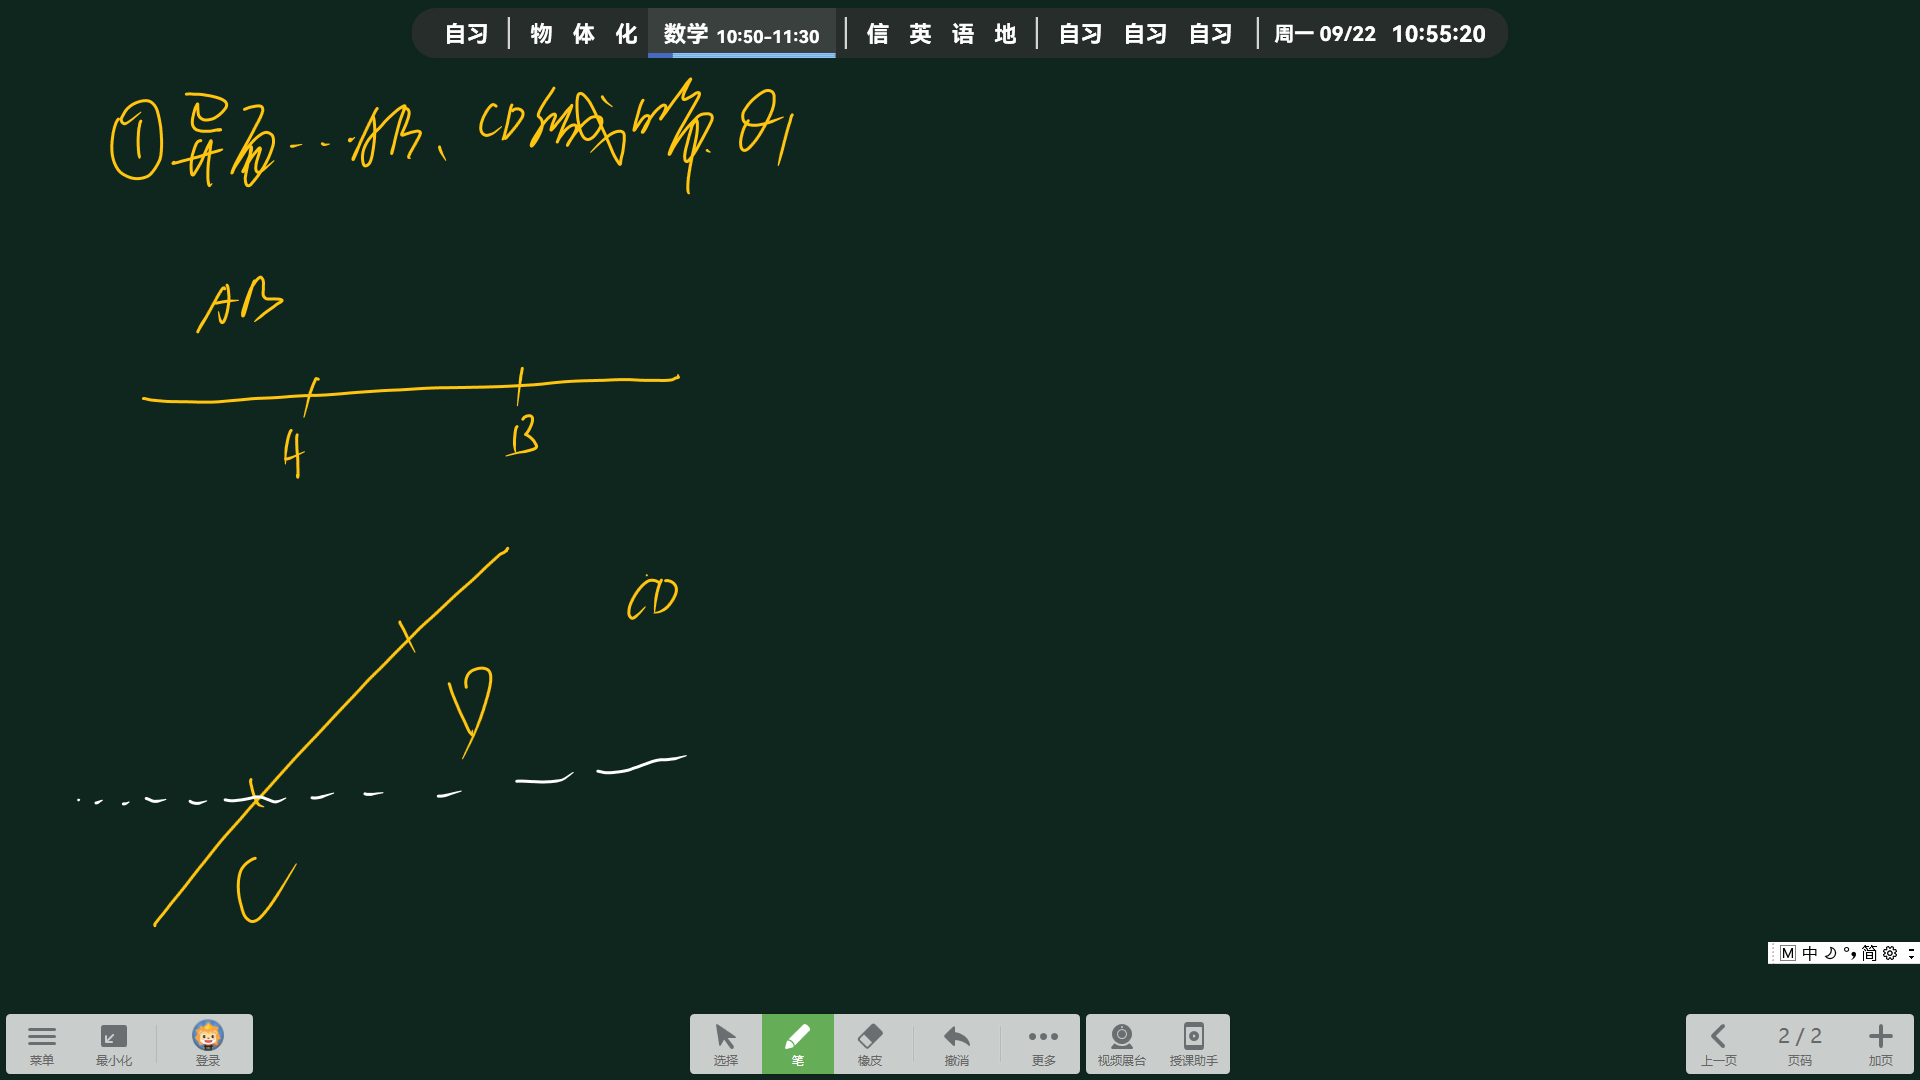 自习 物 体 化 数学 10:50-11:30 信 英 语 地 自习 自习 自习 周一 09/22 10:55:20
①异面…AB、CD 成 角 θ1
AB
A B
CD
D
C
M 中 简
菜单 最小化 登录 选择 笔 橡皮 撤消 更多 视频展台 授课助手 上一页 2 / 2 页码 加页